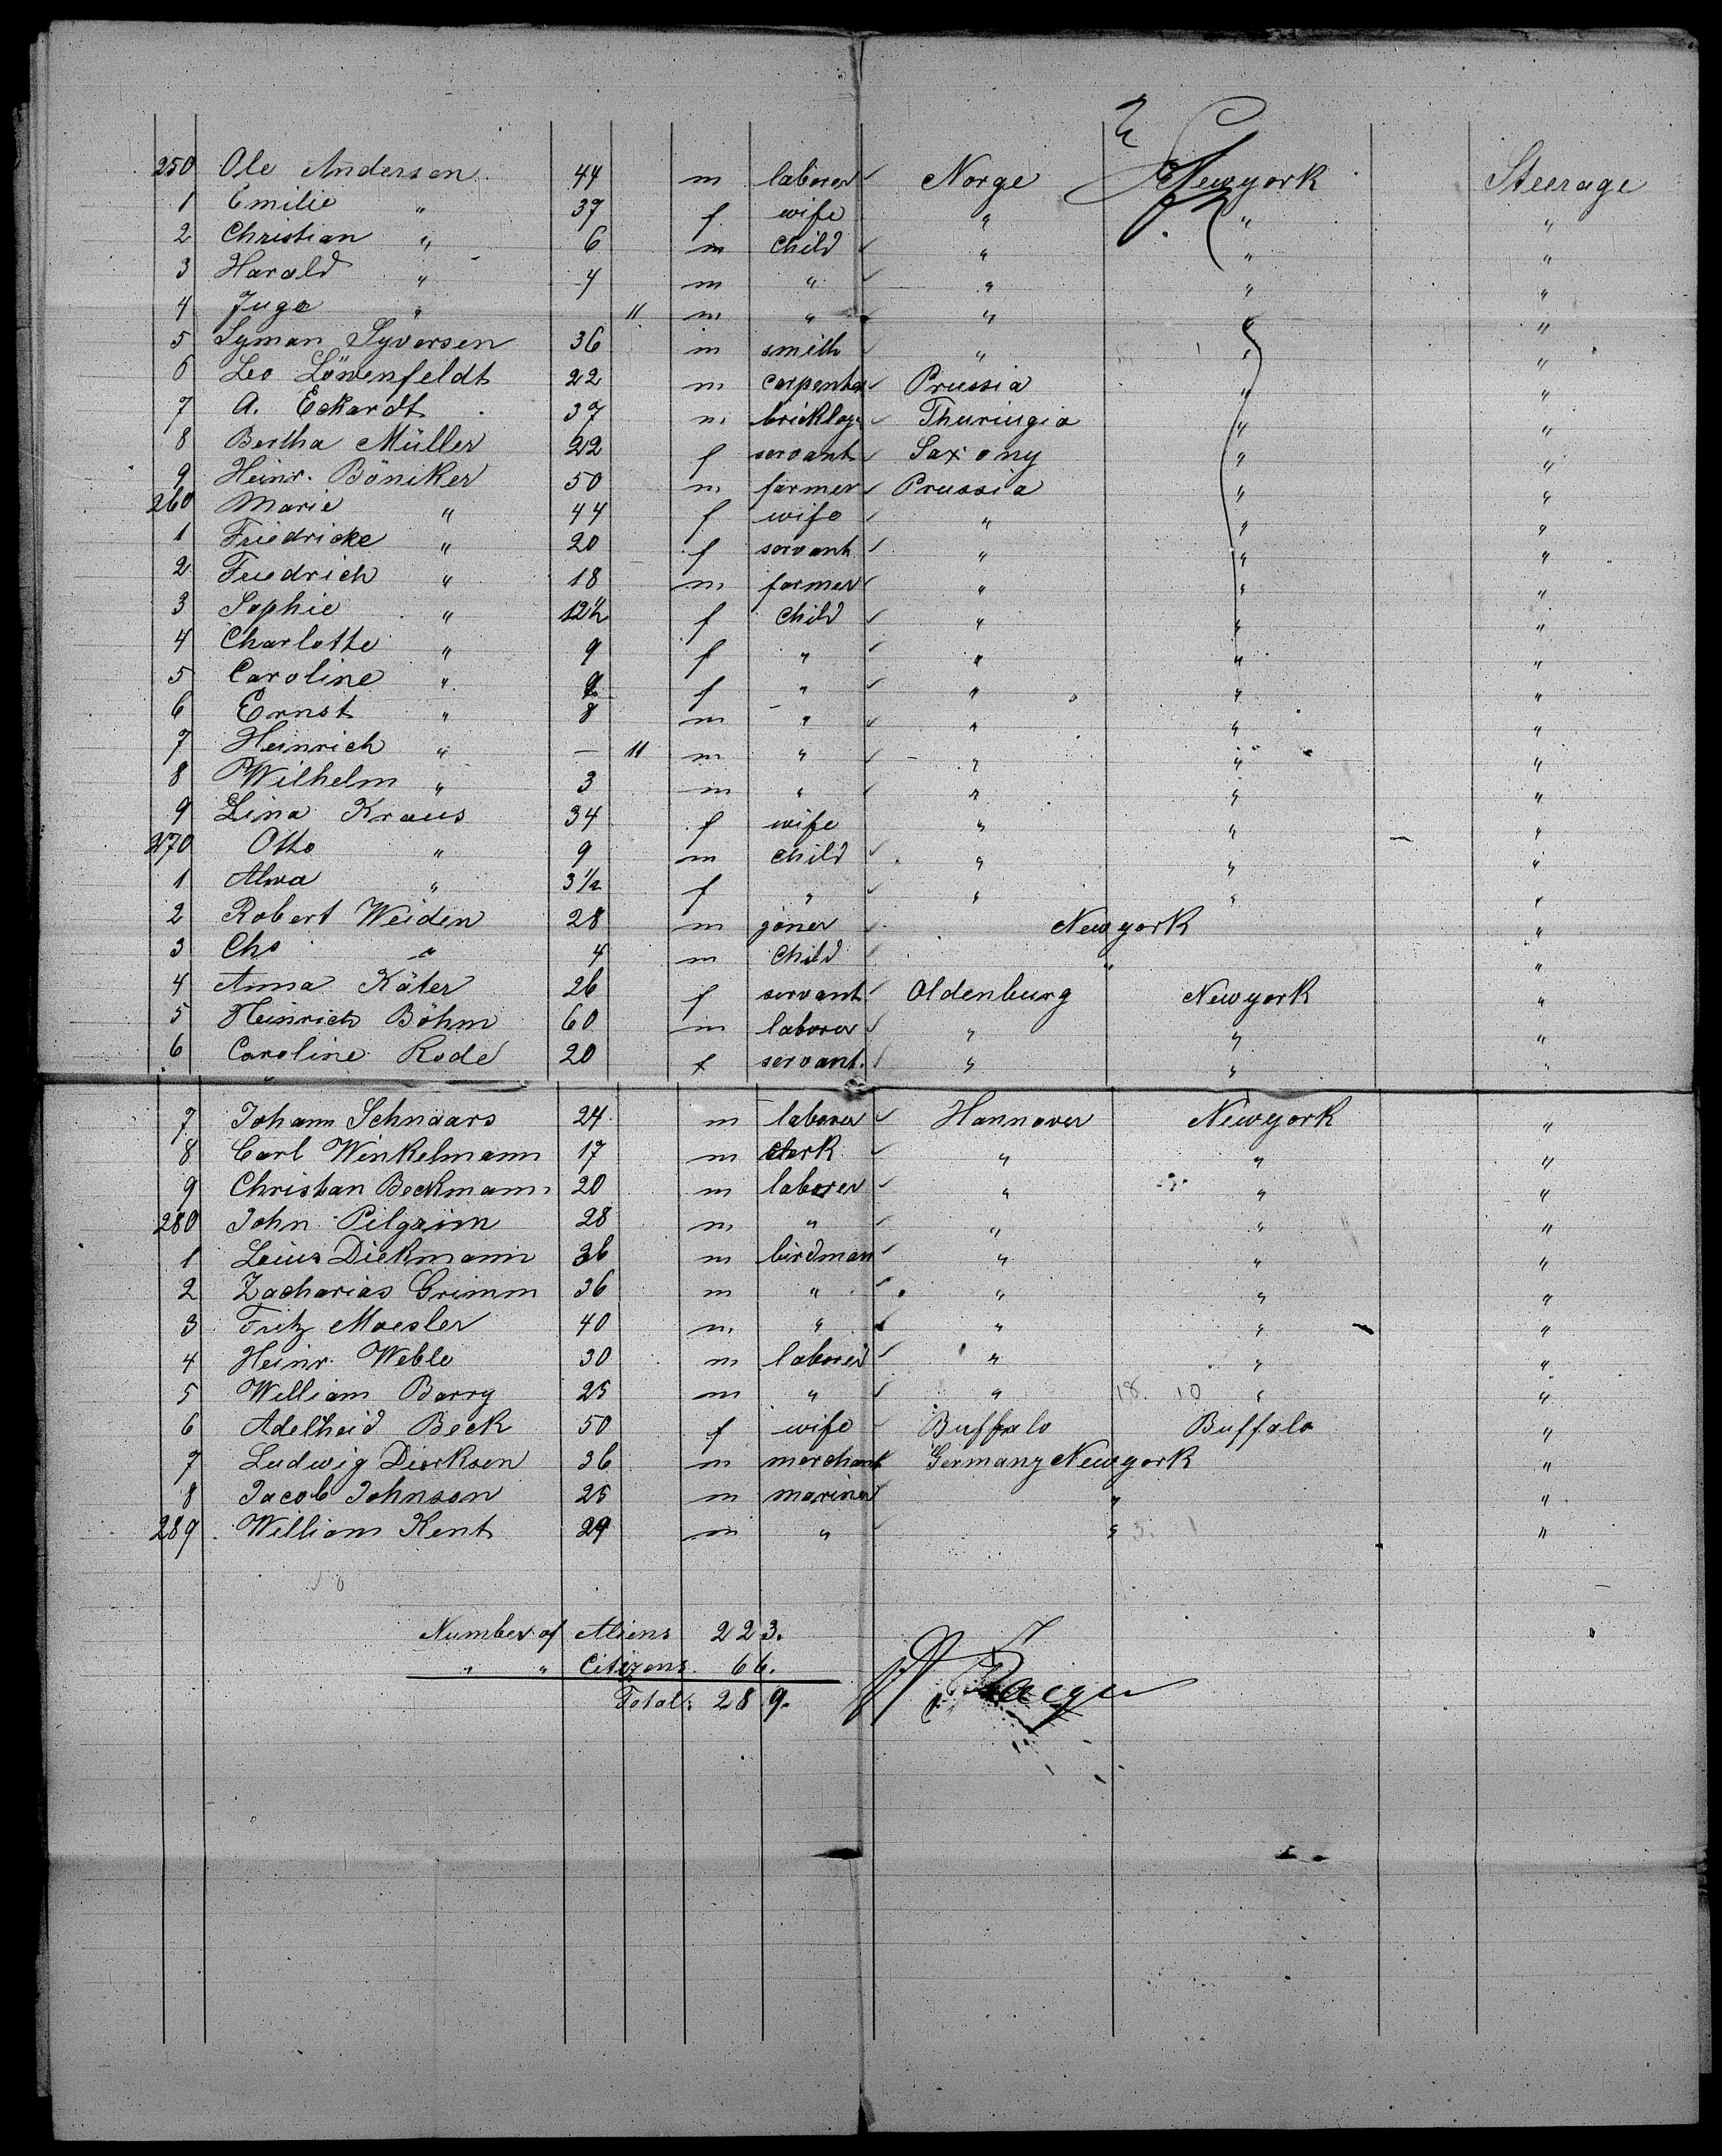 250 Ole Andersen 44 m laborer ✓ Norge Newyork Steerage
1 Emilie " 37 f wife " " "
2 Christian " 6 m Child ✓ " " "
3 Harald " 4 m " ✓ " " "
4 Juga " 11 m " ✓ " " "
5 Syman Syversen 36 m smith ✓ " " "
6 Leo Löwenfeldt 22 m carpenter ✓ Prussia " "
7 A. Eckardt 37 m bricklay. ✓ Thuringia " "
8 Bertha Müller 22 f servant ✓ Saxony " "
9 Heinr. Böniker 50 m farmer ✓ Prussia " "
260 Marie " 44 f wife ✓ " " "
1 Friedricke " 20 f servant ✓ " " "
2 Friedrich " 18 m farmer ✓ " " "
3 Sophie " 12½ f Child ✓ " " "
4 Charlotte " 9 f " ✓ " " "
5 Caroline " 9 f " ✓ " " "
6 Ernst " 8 m " ✓ " " "
7 Heinrich " — 11 m " ✓ " " "
8 Wilhelm " 3 m " ✓ " " "
9 Lina Kraus 34 f wife " " "
270 Otto " 9 m child ✓ " " "
1 Alwa " 3½ f " ✓ " " "
2 Robert Weiden 28 m joner ✓ Newyork "
3 Chs " 4 m Child ✓ " "
4 Anna Käter 26 f servant ✓ Oldenburg Newyork "
5 Heinrich Böhm 60 m laborer ✓ " " "
6 Caroline Rode 20 f servant. ✓ " " "
7 Johann Schnaars 24 m laborer ✓ Hannover Newyork "
8 Carl Winkelmann 17 m clerk ✓ " " "
9 Christian Beckmann 20 m laborer ✓ " " "
280 John Pilgrim 28 m " ✓ " " "
1 Loius Diekmann 36 m birdman ✓ " " "
2 Zacharias Grimm 36 m " ✓ " " "
3 Fritz Moesler 40 m " ✓ " " "
4 Heinr. Weble 30 m laborer ✓ " " "
5 William Barry 25 m " ✓ " 18. 10 " "
6 Adelheid Beck 50 f wife ✓ Buffalo Buffalo "
7 Ludwig Dierksen 36 m merchant Germany Newyork "
8 Jacob Johnson 25 m mariner " "
289 William Kent 29 m " ✓ " 3. 1 "
Number of Aliens 223.
" " Citizens. 66.
Total: 289.